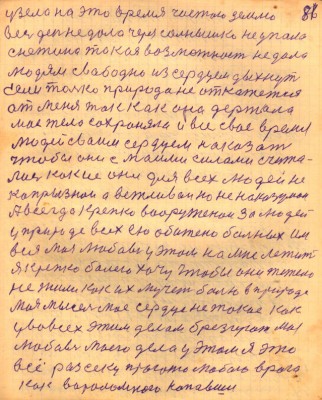 узело на это время чистою землю 86
весь день недолочеря солнышко не упала
снежино такая возможност недала
людям свабодно из сердцем дыхнут
если толко природа не откажется
от меня так как она держала
мае тело сохраняла и все свое время
людей сваим сердцем наказат
чтобы они с маими силами счита-
лис какие они для всех людей не
капризнаи а вежливаи но не наказуиаи
я всегда крепко вооруженаи за людей
у природе всех ею обижено больных им
вся мая любавь у этом на мне лежит
я крепко болею хочу чтобы они тяжело
не жили как их мучит бољю в природе
мая мысел мое сердце не такое как
у во всех этим делам брезгуют мая
любавь маего дела у этом я это
всё рассеку просто любого врага
как вораломного капавши